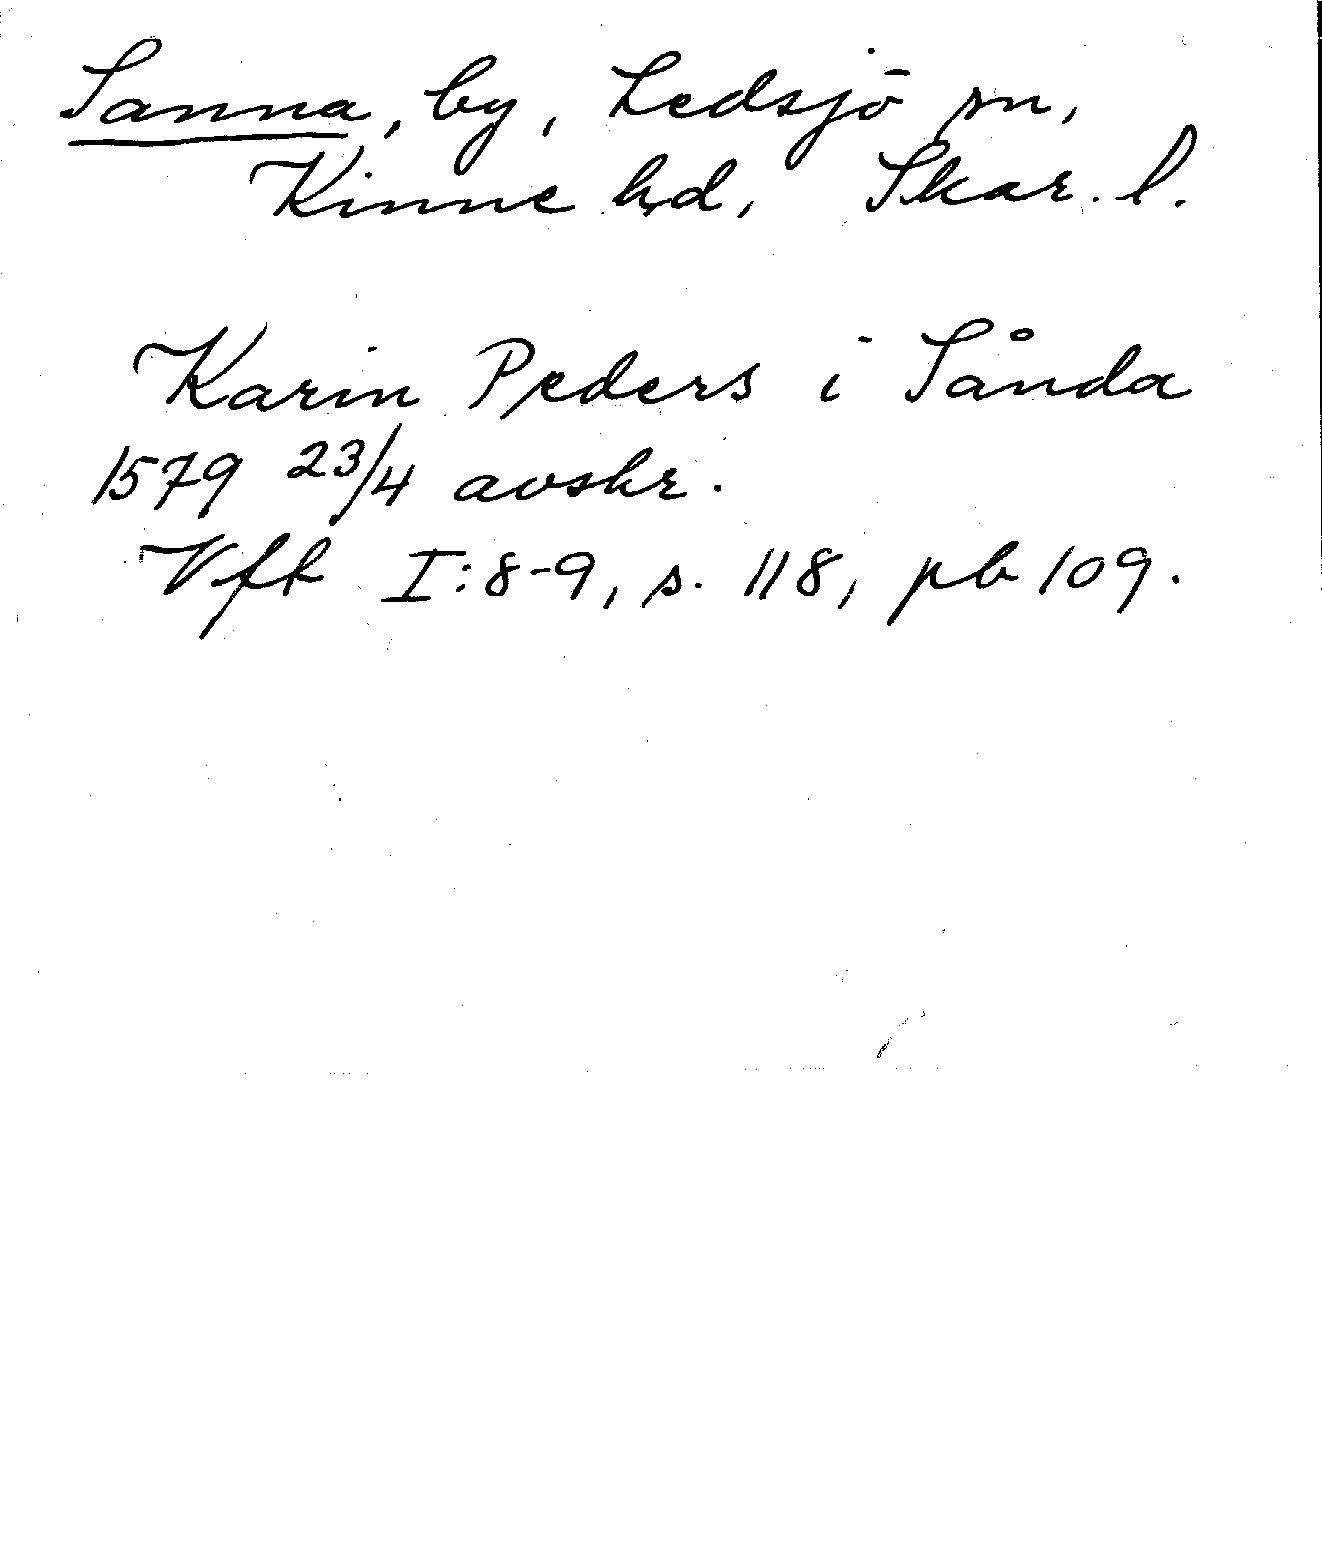 Sanna, by, Ledsjö sn,
Kinne hd, Skar. l.
Karin Peders i Sånda
1579 23/4 avskr.
Vft I:8-9, s. 118, pb 109.